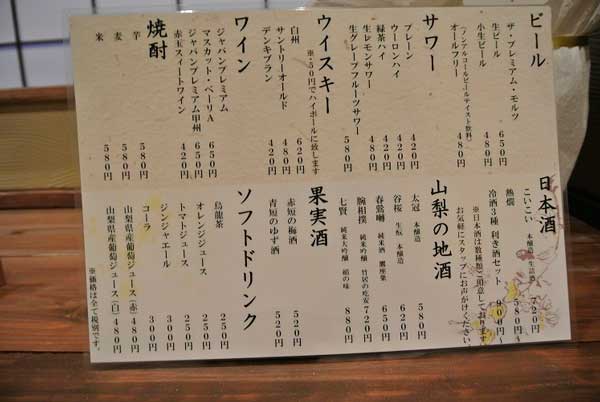 ビール
ザ・プレミアム・モルツ 650円
生ビール 480円
小生ビール
オールフリー 480円
(ノンアルコールビールテイスト飲料)
サワー
プレーン 420円
ウーロンハイ 420円
緑茶ハイ 420円
生レモンサワー 480円
生グレープフルーツサワー 580円
ウイスキー
※+50円でハイボールに致します
白州 620円
サントリーオールド 480円
デンキブラン 420円
ワイン
ジャパンプレミアム
マスカット・ベーリA 650円
ジャパンプレミアム甲州 650円
赤玉スイートワイン 420円
焼酎
芋 580円
麦 580円
米 580円
日本酒
こいこい 本醸造 生詰酒 720円
熱燗 380円〜
冷酒3種 利き酒セット 900円〜
※日本酒は数種類ご用意しております。
お気軽にスタッフにお声がけください。
山梨の地酒
太冠 本醸造 580円
谷桜 生酛 本醸造 620円
春鶯囀 純米酒 鷹座巣 650円
腕相撲 純米吟醸 竹居の吃安 720円
七賢 純米大吟醸 絹の味 880円
果実酒
赤短の梅酒 520円
青短のゆず酒 520円
ソフトドリンク
烏龍茶 250円
オレンジジュース 250円
トマトジュース 250円
ジンジャエール 300円
コーラ 300円
山梨県産葡萄ジュース(赤) 480円
山梨県産葡萄ジュース(白) 480円
※価格は全て税別です。